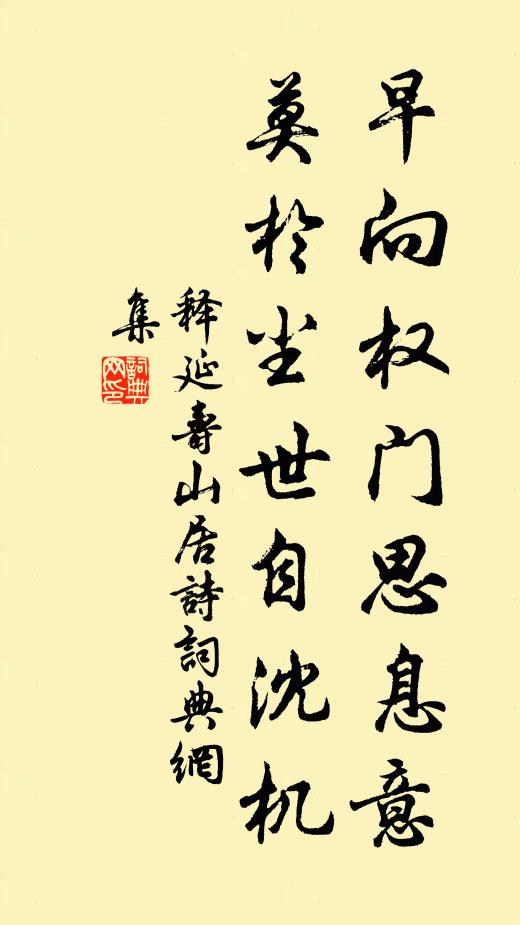 早向权门思息意
莫於尘世自沈机
释延壽山居詩詞典網
集
詞典网印